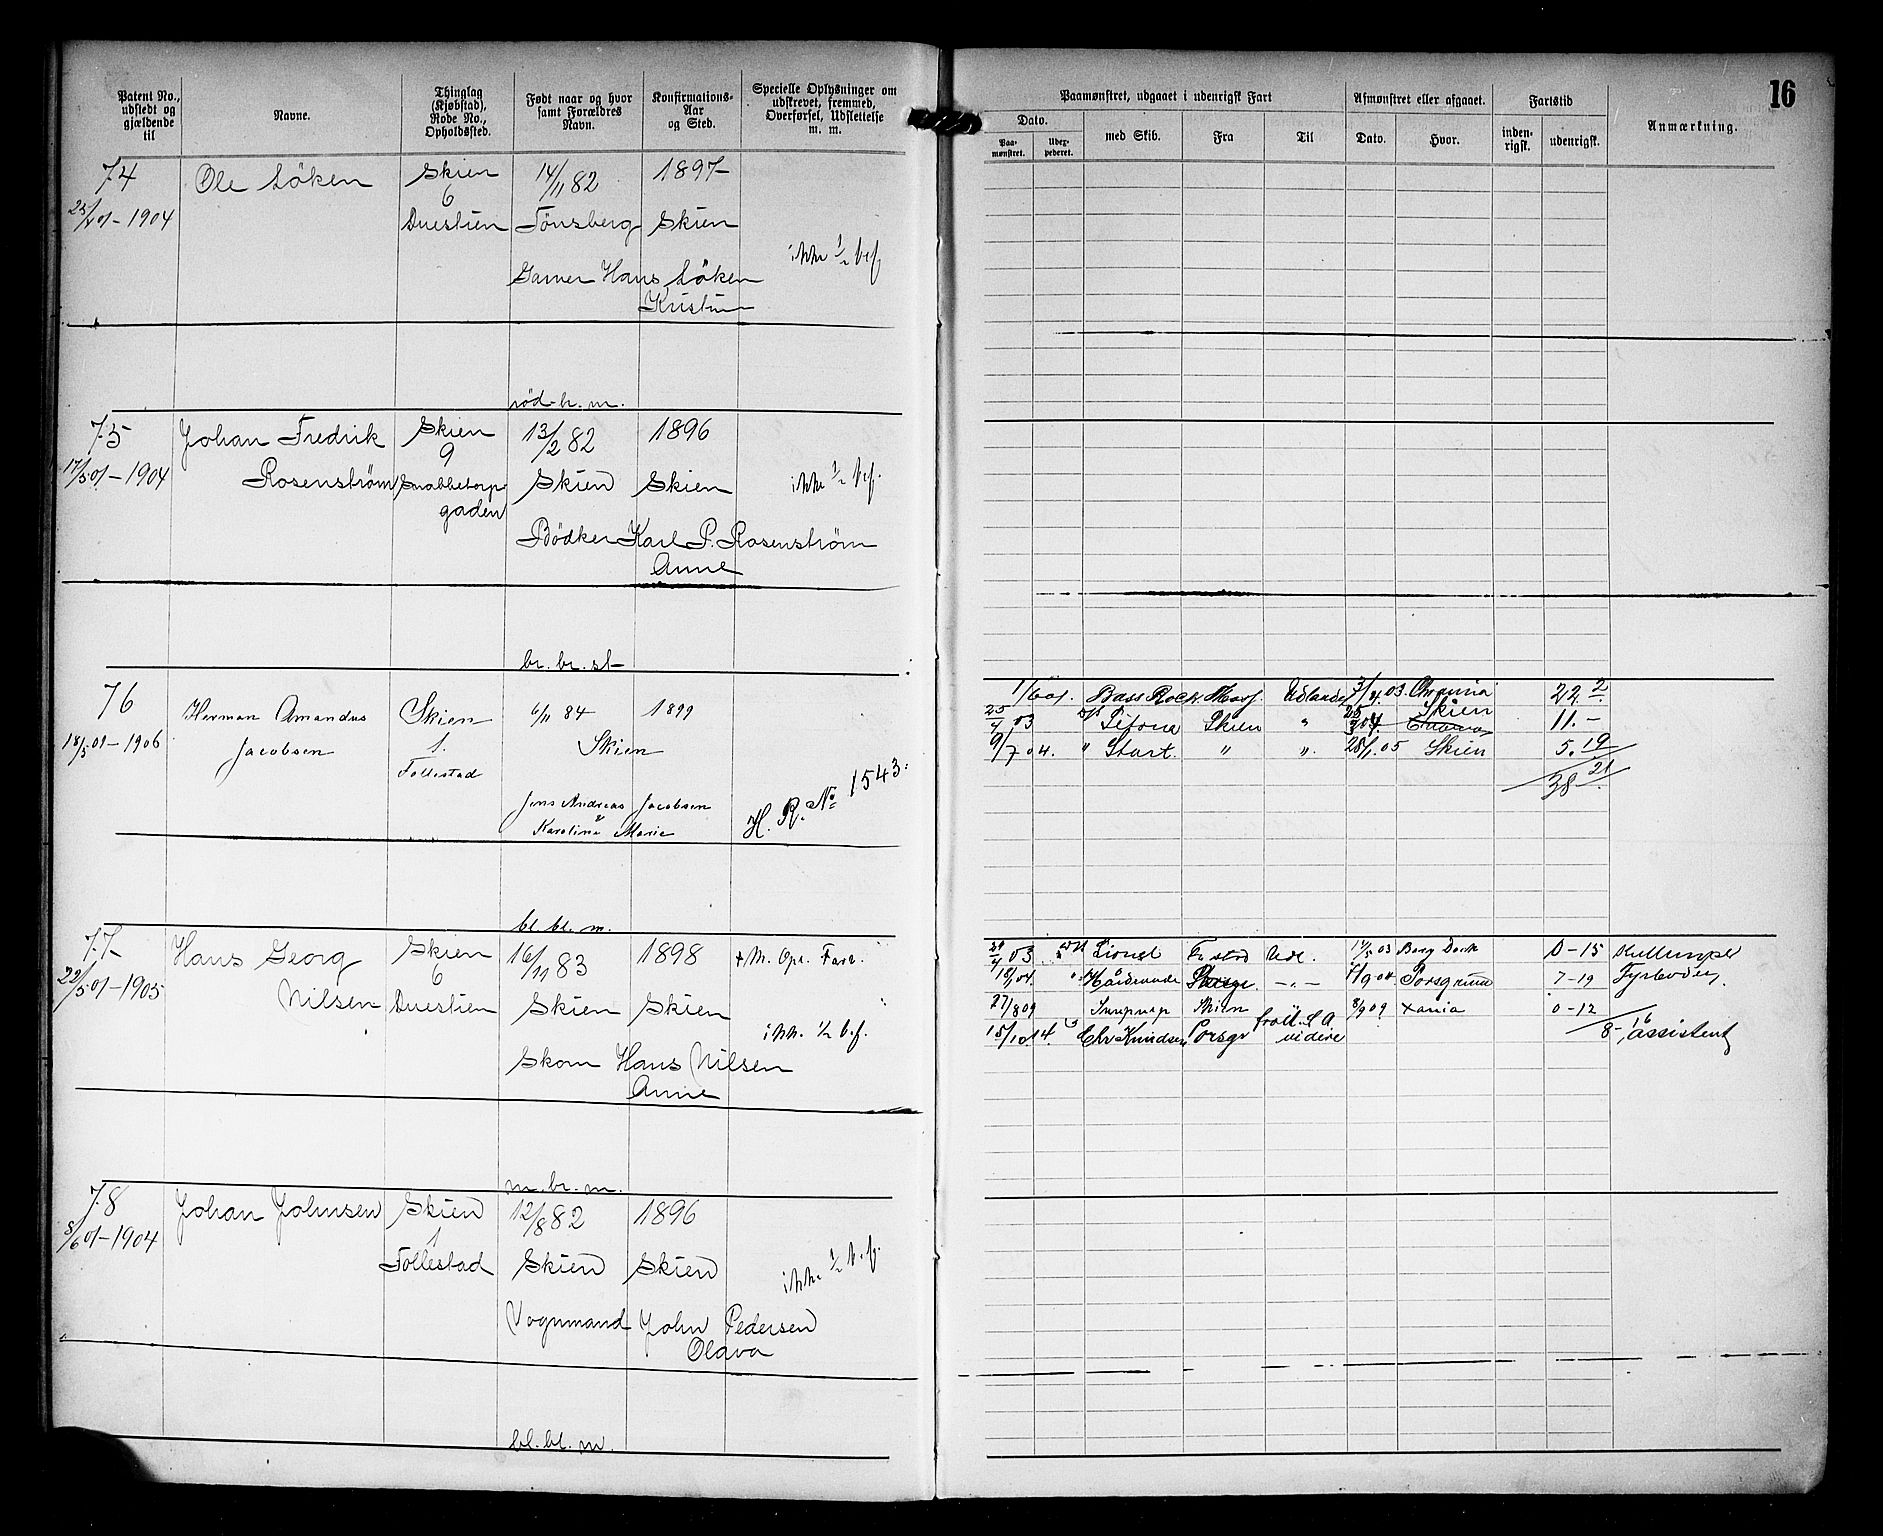 16
Patent No., udstedt og gjældende til
Navne.
Thinglag (Kjøbstad), Rode No., Opholdssted.
Født naar og hvor samt Forældres Navn.
Konfirmations-Aar og Sted.
Specielle Oplysninger om udskrevet, fremmed, Overførsel, Udslettelse m. m.
Paamønstret, udgaaet i udenrigsk Fart
Dato.
Paa-mønstret.
med Skib.
Fra
Til
Afmønstret eller afgaaet.
Dato.
Hvor.
Fartstid
inden-rigsk.
udenrigsk.
Anmærkning.
74 Ole Löken Skien 14/11 82 1897
6
01-1904 Duestien Tönsberg Skien
ikke 1/2 bef.
Garver Hans Löken
Kristine
röd. br. m.
75 Johan Fredrik Skien 13/2 82 1896
9
17/5 01-1904 Rosenström Snabbetorp- Skien Skien ikke 1/2 bef.
gaden
Bödker Karl P. Rosenström
Anne
br. br. st
76 Herman Amandus Skien 6/11 84 1899
18/5 01-1906 Jacobsen 1. Skien
Follestad
Jens Andreas Jacobsen
& Karoline Marie
H. R. No 1543.
1/6 01. Bass Rock Udlandet 3/4 03 22. 2
Skien
25/4 03 Skien " 04. 11. -
9/7 04. " Start. " " 28/1. 05 Skien 5. 19
38 21
bl. bl. m.
77 Hans Georg Skien 16/11 83 1898
6
22/5 01-1905 Nilsen Duestien Skien Skien
ikk. 1/2 bef.
Skom Hans Nilsen
Anne
03 Lionel 14/5 03 Barry Dock 0-15 Kullemper
04. 04 Porsgrund 7-19 Fyrbøder
27/8 09 Skien 8/9 09 Xania 0-12
8-16
15/10 14. Chr Knudsen Porsgr videre assistent
m. br. m.
78 Johan Johnsen Skien 12/8 82 1896
1
8/6 01-1904 Follestad Skien Skien ikke 1/2 b.f.
Vognmand John Pedersen
Olava
bl. bl. m.